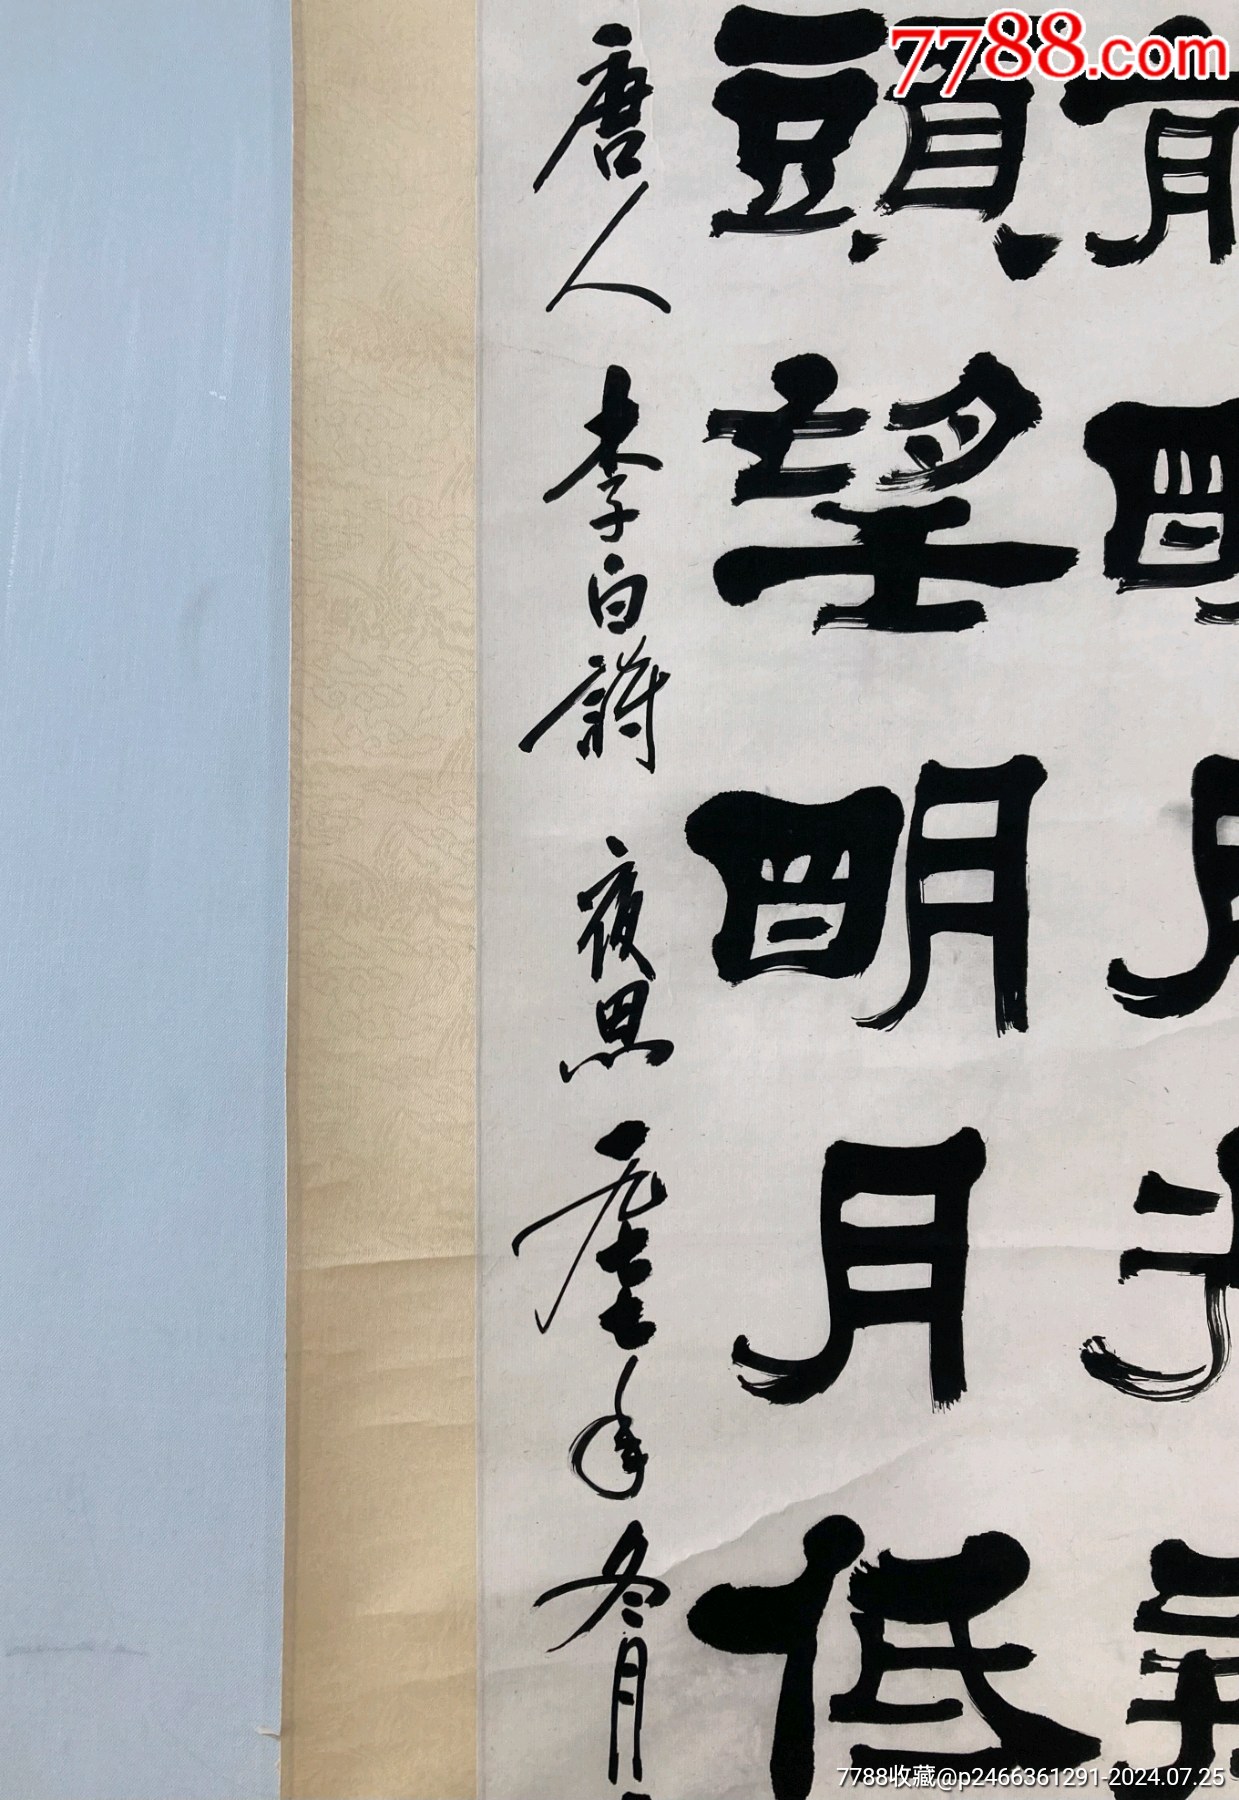 7788.com
前明月
頭望明月低
唐人李白詩夜思一九七七年冬月
7788收藏@p2466361291-2024.07.25